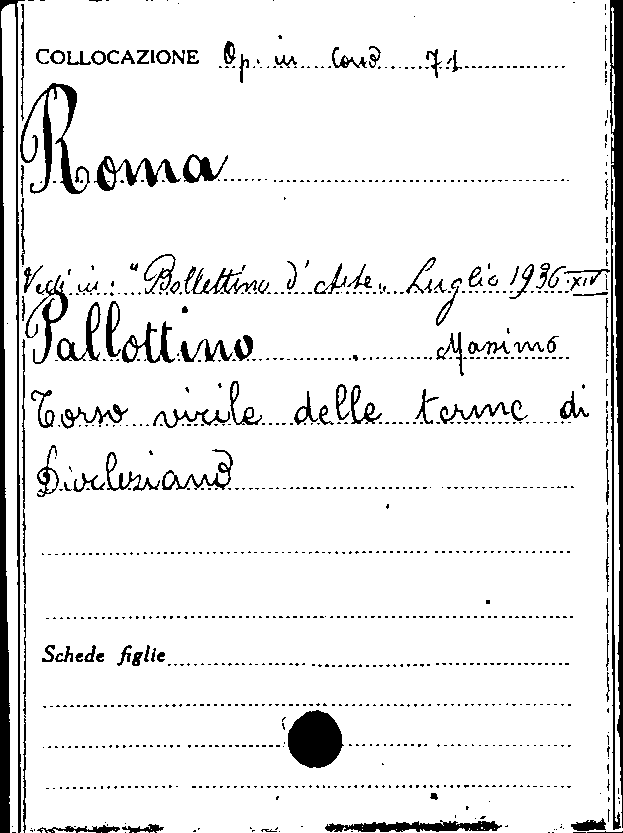 COLLOCAZIONE Op. in Cond. 71
Roma
Vedi in: "Bollettino d'Arte„ Luglio 1936-XIV
Pallottino. Massimo
Torso virile delle terme di
Diocleziano
Schede figlie